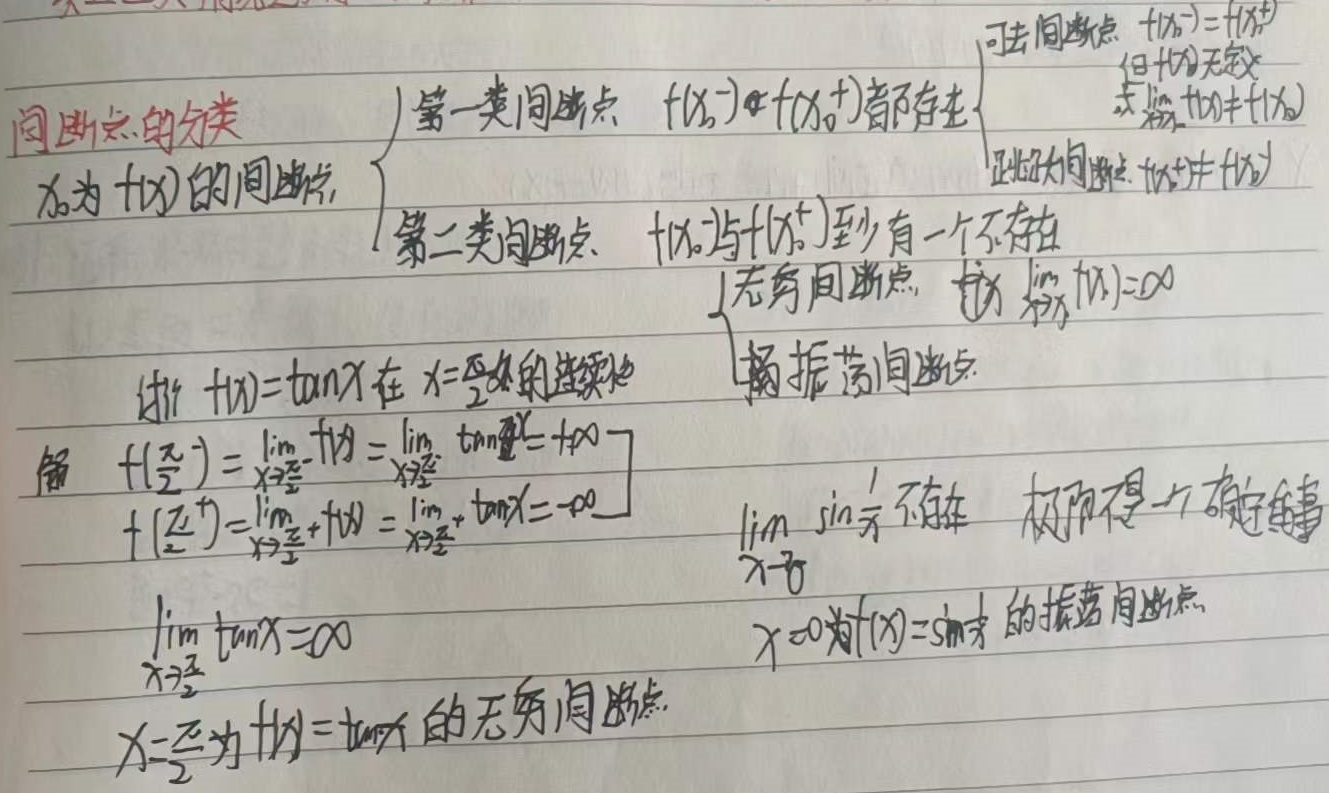 间断点的分类
x₀为 f(x) 的间断点
第一类间断点 f(x₀⁻) f(x₀⁺)都存在
可去间断点 f(x₀⁻)=f(x₀⁺)
但f(x)无定义
或 lim f(x)≠f(x₀)
跳跃间断点 f(x₀⁺)≠f(x₀⁻)
第二类间断点 f(x₀⁻)与f(x₀⁺)至少有一个不存在
无穷间断点 lim f(x)=∞
振荡间断点
讨论 f(x)=tanx 在 x=π/2处的连续性
解 f(π/2⁻)=lim x→π/2⁻ f(x)=lim x→π/2⁻ tanx=+∞
f(π/2⁺)=lim x→π/2⁺ f(x)=lim x→π/2⁺ tanx=-∞
lim x→π/2 tanx=∞
x=π/2为 f(x)=tanx 的无穷间断点
lim x→0 sin1/x 不存在 极限得一个确定
x=0为f(x)=sin1/x 的振荡间断点